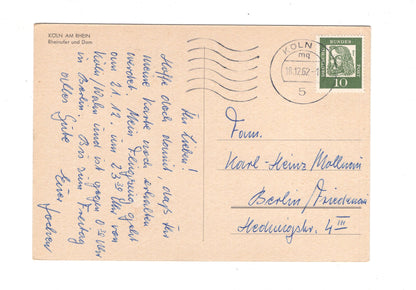 KÖLN AM RHEIN
Rheinufer und Dom
Ihr Lieben!
Hoffe doch damit, daß Ihr
meine Karte noch erhalten
werdet. Mein Flugzeug geht
am 21.12 um 23 30 Uhr von
Köln/Wahn und ist gegen 0 30 Uhr
in Berlin. Bis zum Freitag
alles Gute
Euer Jochen
KÖLN
mq
18.12.62
5
DEUTSCHE BUNDESPOST
10
Fam.
Karl-Heinz Mollmann
Berlin/Friedenau
Hedwigstr. 4 III